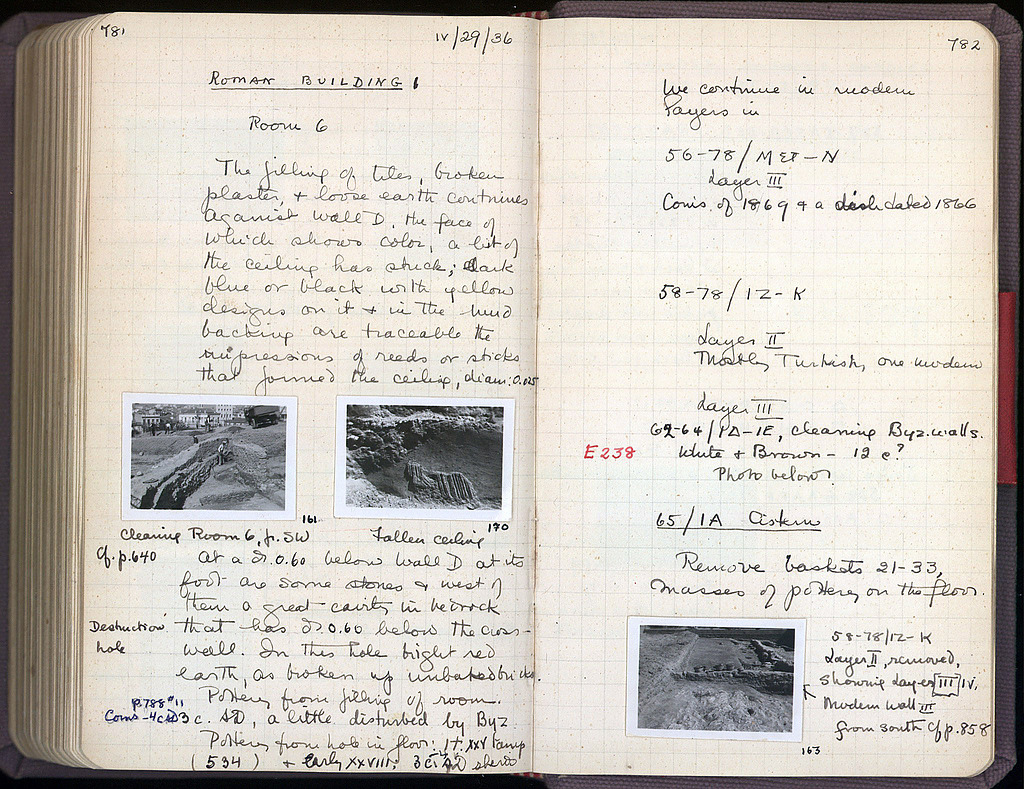 781
IV/29/36
ROMAN BUILDING 1
Room 6
The filling of tiles, broken
plaster, & loose earth continues
against wall D, the face of
which shows color, a bit of
the ceiling has stuck; dark
blue or black with yellow
designs on it & in the mud
backing are traceable the
impressions of reeds or sticks
that formed the ceiling, diam: 0.025
161
170
Cleaning Room 6, fr. SW
Fallen ceiling
Cf. p. 640
At a d. 0.60 below wall D at its
foot are some stones & west of
them a great cavity in bedrock
Destruction
hole
that has d. 0.60 below the cross-
wall. In this hole bright red
earth, as broken up unbaked bricks.
Pottery from filling of room.
p. 788 #11
Coins - 4c AD
3 c. AD, a little disturbed by Byz.
Pottery from hole in floor: 1 t. XXV lamp
(534) & early XXVIII, 3 c AD sherds
782
We continue in modern
layers in
56-78/ΜΣΤ-Ν
Layer III
Coins of 1869 & a dish dated 1866
58-78/ΙΖ-Κ
Layer II
Mostly Turkish, one modern
Layer III
62-64/ΙΔ-ΙΕ, cleaning Byz. walls.
E 238
White & Brown - 12 c?
Photo below
65/ΙΑ Cistern
Remove baskets 21-33,
masses of pottery on the floor.
58-78/ΙΖ-Κ
Layer II, removed,
showing Layer III IV,
Modern wall III
from south Cf p. 858
163